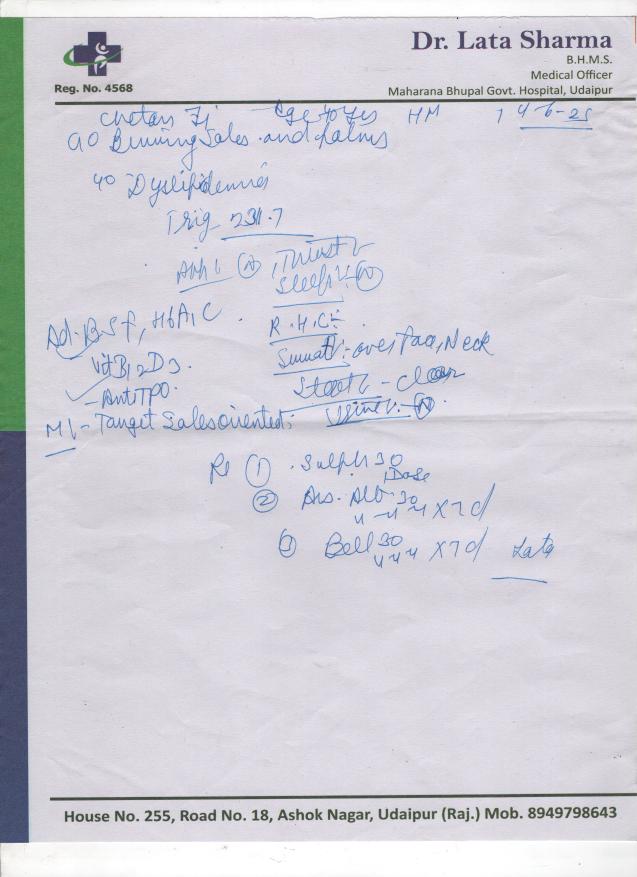 Dr. Lata Sharma
B.H.M.S.
Medical Officer
Maharana Bhupal Govt. Hospital, Udaipur
Reg. No. 4568
Chetan Ji Age 40 yrs HM 14-6-25
C/O Burning Soles and palms
Dyslipidemia
Trig 231.7
App (N), Thirst
Sleep (N)
Ad. BSF, HbA1C.
R.H.C
Sweat - over face, Neck
Vit B12 D3
Stool - clear
- Anti TPO.
Urine - (N)
M - Target Sales oriented
Rx (1) Sulph 30
1 Dose
(2) Ars. Alb 30
4-4-4 x 7 d
(3) Bell 30
4-4-4 x 7 d
Lata
House No. 255, Road No. 18, Ashok Nagar, Udaipur (Raj.) Mob. 8949798643